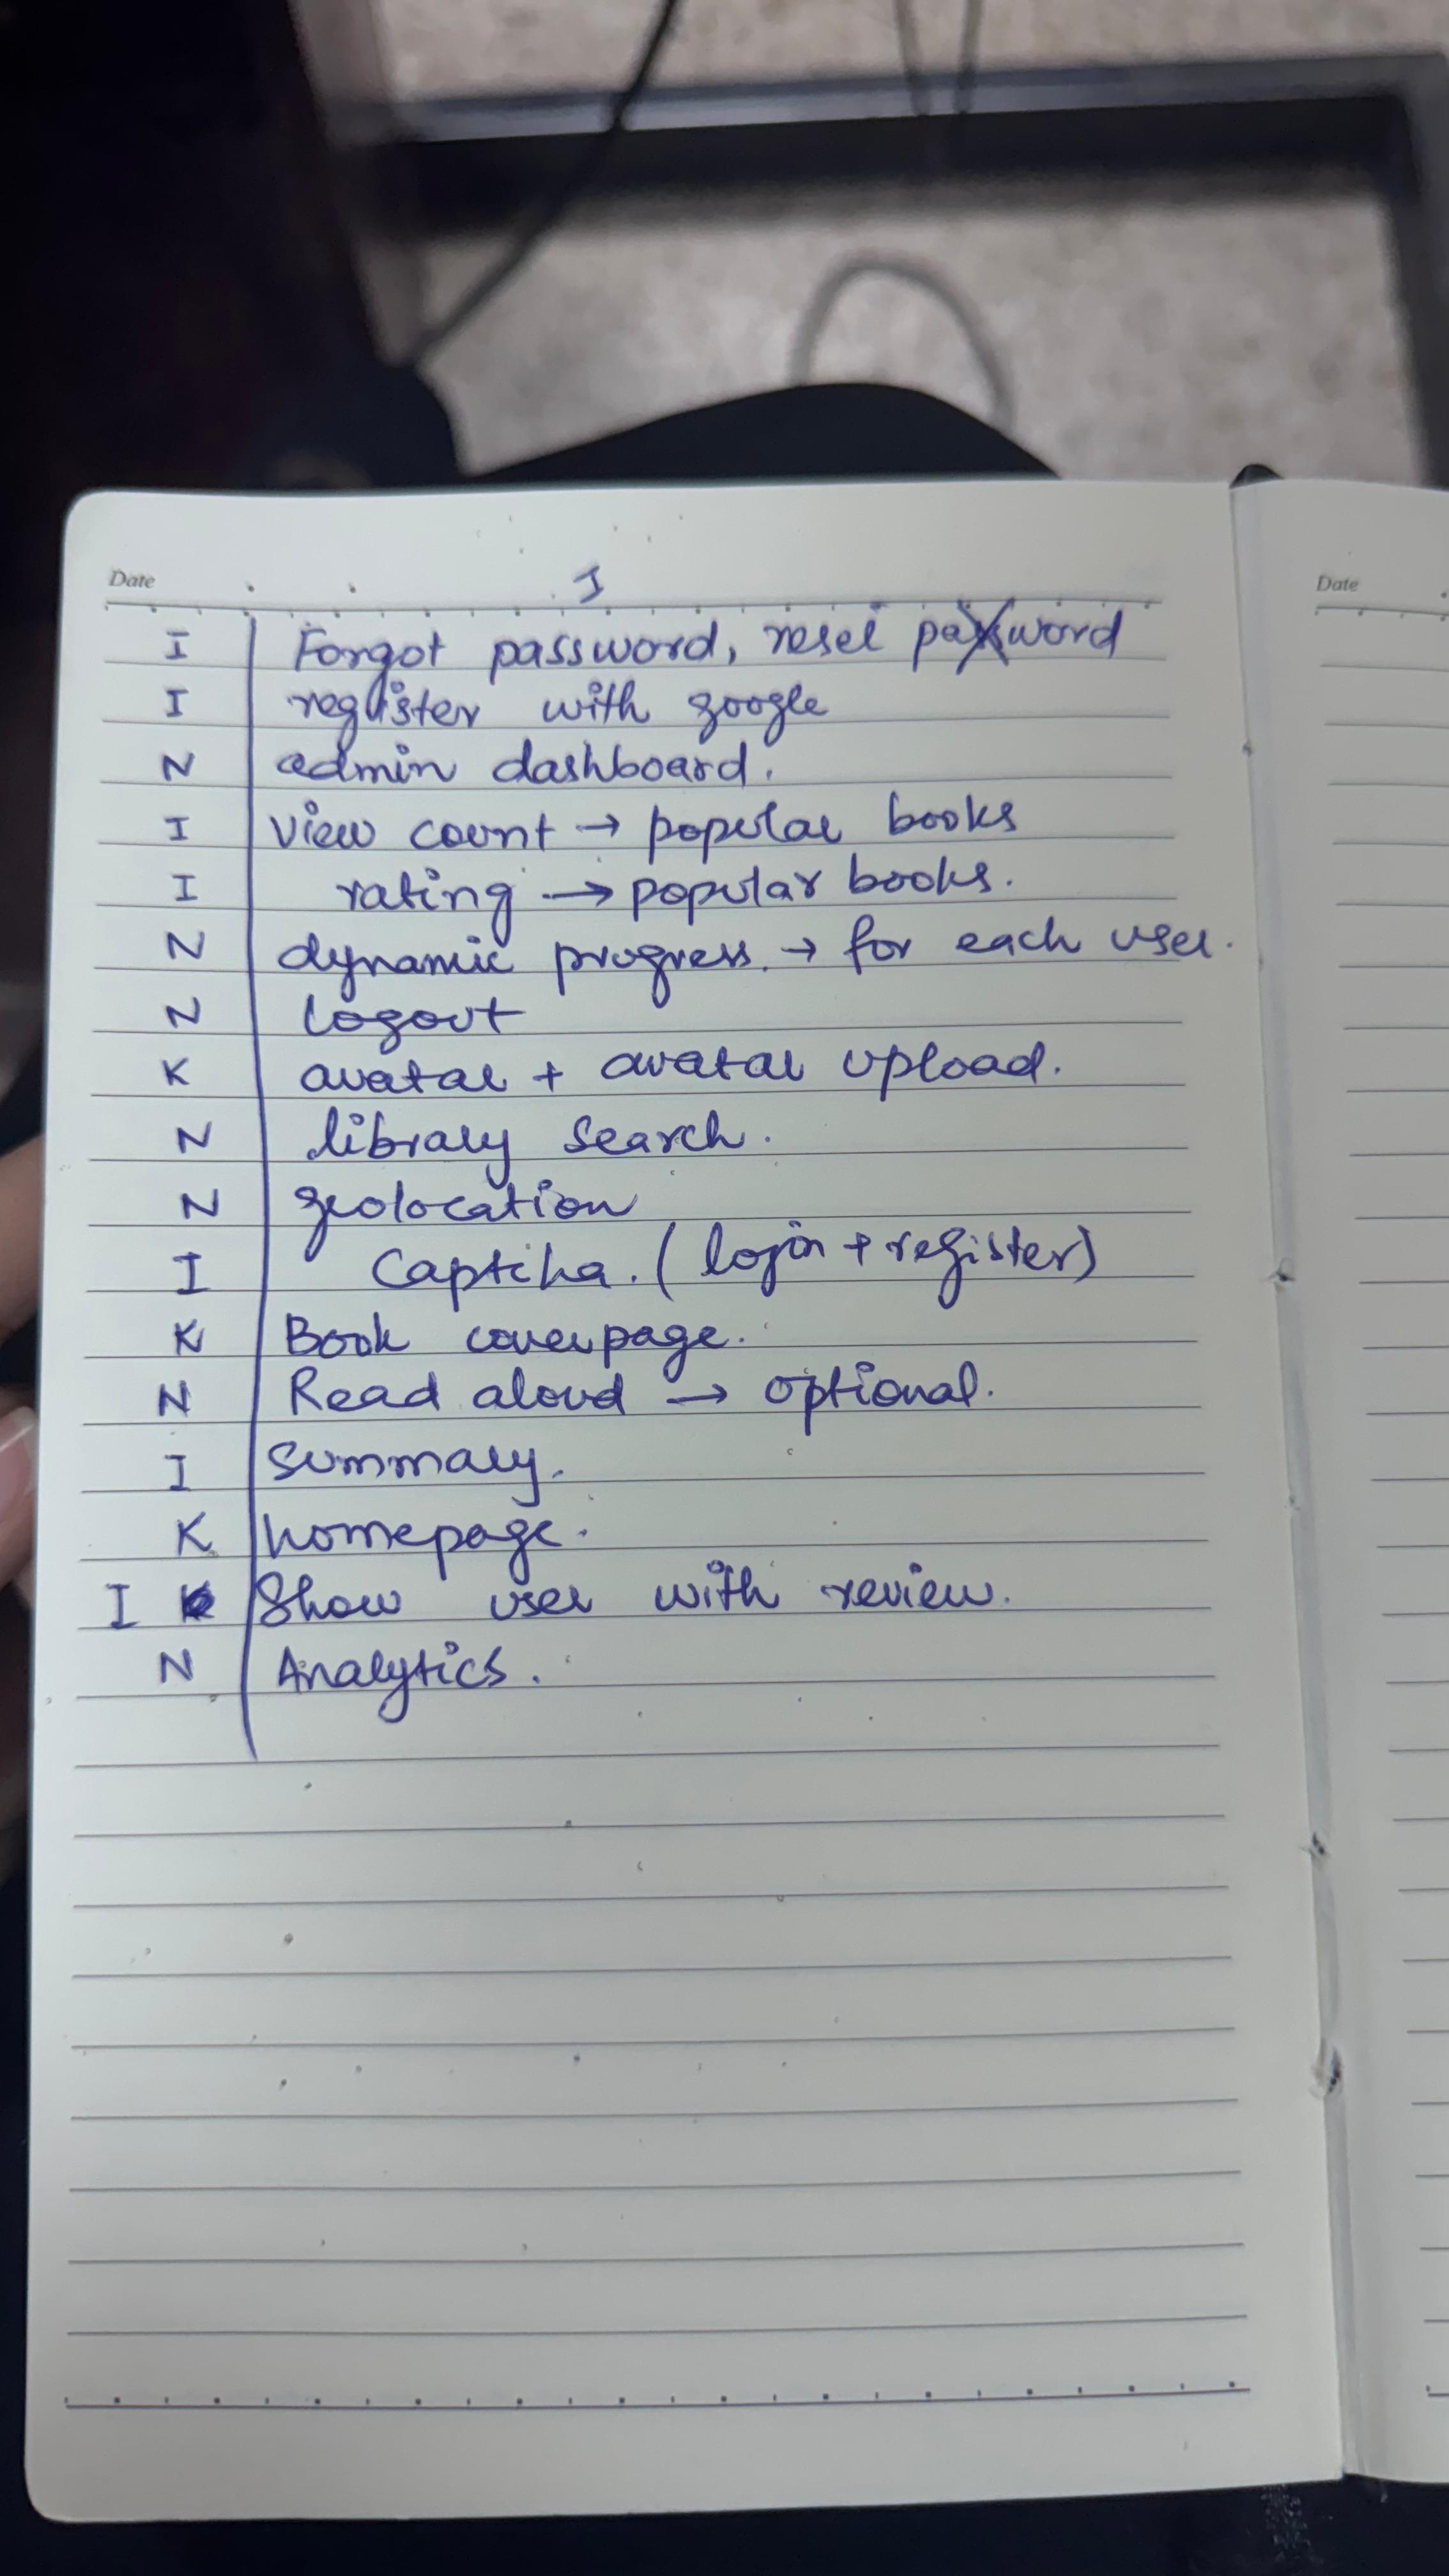 Date
I
I Forgot password, reset password
I register with google
N admin dashboard.
I View count → popular books
I rating → popular books.
N dynamic progress. → for each user.
N logout
K avatar + avatar upload.
N library search.
N geolocation
I Captcha. (login + register)
K Book coverpage.
N Read aloud → optional.
I Summary.
K homepage.
I K Show user with review.
N Analytics.
Date